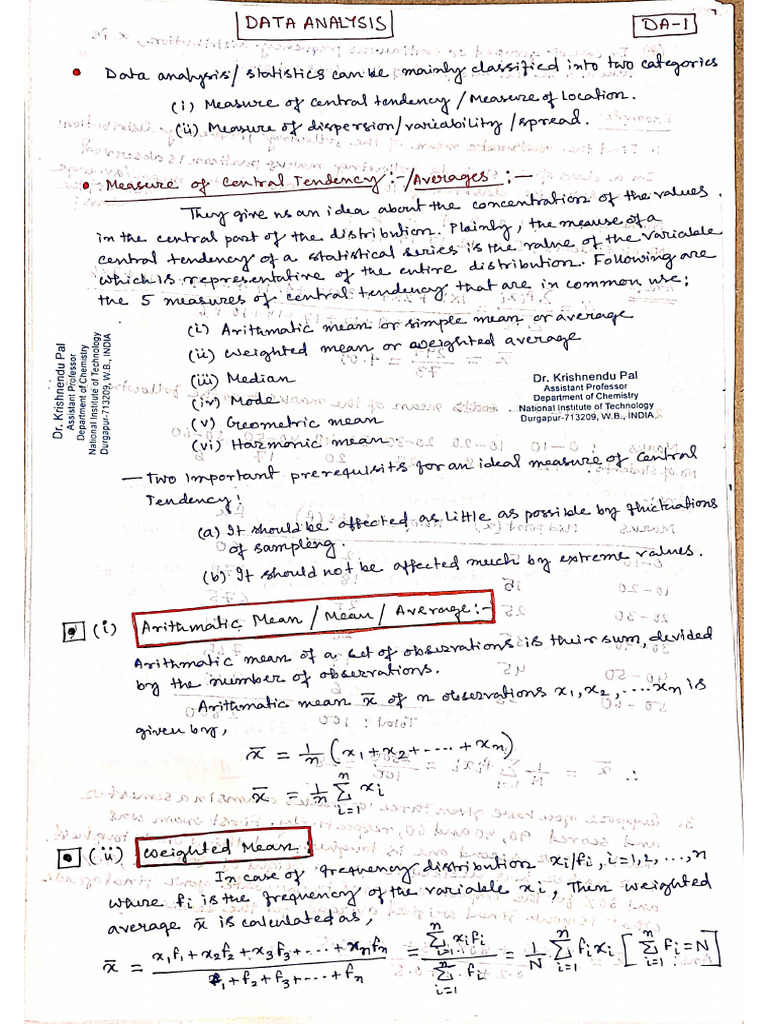 DATA ANALYSIS
DA-1
• Data analysis/ statistics can be mainly classified into two categories
(i) Measure of central tendency / Measure of Location.
(ii) Measure of dispersion/variability /spread.
• Measure of Central Tendency:-/Averages:—
They give us an idea about the concentration of the values
in the central part of the distribution. Plainly, the meause of a
central tendency of a statistical series is the value of the variable
which is representative of the entire distribution. Following are
the 5 measures of central tendency that are in common use:
(i) Arithmatic mean or simple mean or average
(ii) Weighted mean or weighted average
(iii) Median
(iv) Mode
(v) Geometric mean
(vi) Harmonic mean
Dr. Krishnendu Pal
Assistant Professor
Department of Chemistry
National Institute of Technology
Durgapur-713209, W.B., INDIA
Dr. Krishnendu Pal
Assistant Professor
Department of Chemistry
National Institute of Technology
Durgapur-713209, W.B., INDIA
— Two important prerequisits for an ideal measure of Central
Tendency:
(a) It should be affected as little as possible by fluctuations
of sampleng.
(b) It should not be affected much by extreme values.
(i) Arithmatic Mean / Mean / Average:-
Arithmatic mean of a set of observations is their sum, devided
by the number of observations.
Arithmatic mean x̄ of n observations x₁, x₂, ....xₙ is
given by,
x̄ = 1/n (x₁+x₂+----+xₙ)
x̄ = 1/n Σⁿᵢ₌₁ xᵢ
(ii) Weighted Mean:
In case of frequency distribution xᵢ/fᵢ, i=1,2, ...,n
where fᵢ is the frequency of the variable xᵢ, Then weighted
average x̄ is calculated as,
x̄ = (x₁f₁+x₂f₂+x₃f₃+...+xₙfₙ)/(f₁+f₂+f₃+...+fₙ) = (Σⁿᵢ₌₁ xᵢfᵢ)/(Σⁿᵢ₌₁ fᵢ) = 1/N Σⁿᵢ₌₁ fᵢxᵢ [Σⁿᵢ₌₁ fᵢ=N]